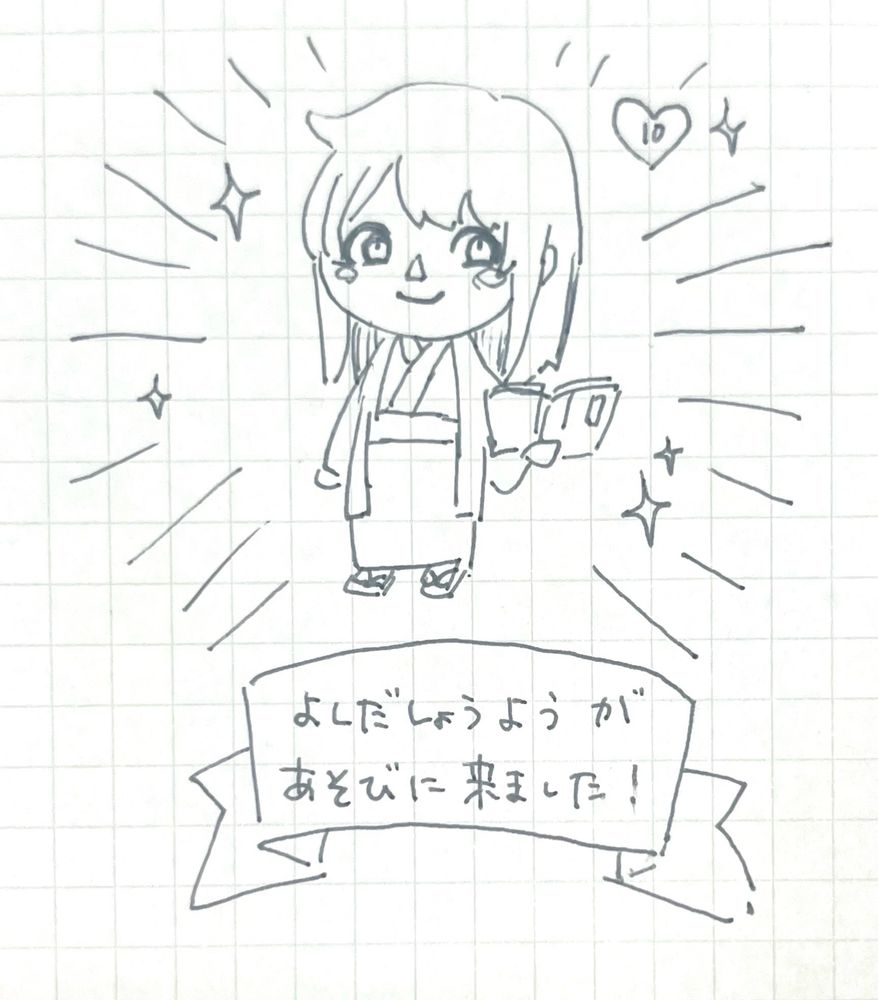 10
よしだしょうようが
あそびに来ました!